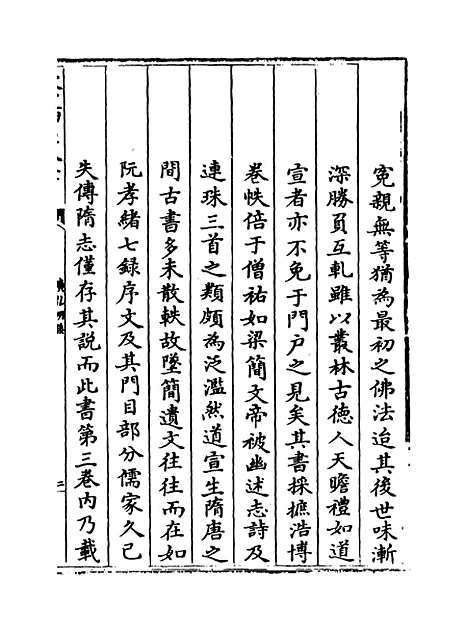 寃親無等猶為最初之佛法迨其後世味漸
深勝負互軋雖以叢林古德人天瞻禮如道
宣者亦不免于門户之見矣其書採摭浩博
卷帙倍于僧祐如梁簡文帝被幽述志詩及
連珠三首之類頗為泛濫然道宣生隋唐之
間古書多未散軼故墜簡遺文往往而在如
阮孝緒七録序文及其門目部分儒家久已
失傳隋志僅存其說而此書第三卷内乃載
廣弘明集
二